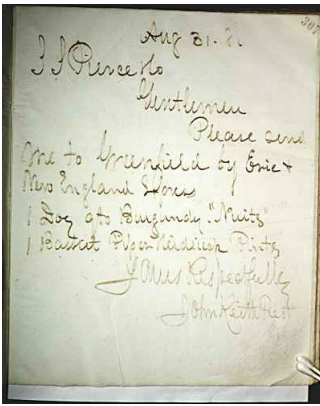 Aug 31. 81
S S Pierce & Co
Gentlemen
Please send
me to Greenfield by Erie &
New England Exprs
1 Doz qts Burgundy "Nuits"
1 Basket Pints
Yours Respectfully
John Keith